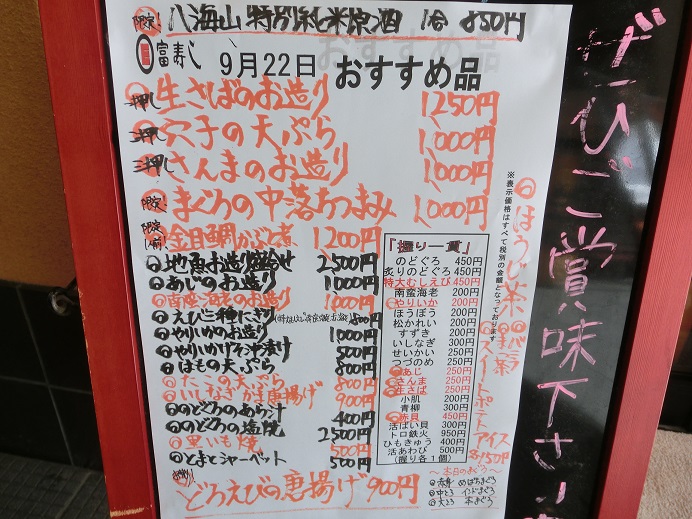 限定! 八海山 特別純米原酒 1合 850円
富寿し 9月22日 おすすめ品
一押し 生さばのお造り 1250円
二押し 穴子の天ぷら 1,000円
三押し さんまのお造り 1,000円
限定! まぐろの中落ちつまみ 1,000円
限定 金目鯛かぶと煮 1,200円
地魚お造り盛合せ 2,500円
あじのお造り 1000円
南蛮海老のお造り 1000円
えび三種にぎり 800円
やりいかのお造り 1000円
やりいかげそ沖漬け 500円
はもの天ぷら 800円
たこの天ぷら 800円
いしなぎかま唐揚げ 900円
のどぐろのあら汁 400円
のどぐろの塩焼 2500円
里いも焼 500円
とまとシャーベット 500円
どろえびの唐揚げ 900円
「握り一貫」
のどぐろ 450円
炙りのどぐろ 450円
特大むしえび 450円
南蛮海老 200円
やりいか 200円
ほうぼう 200円
松かれい 200円
すずき 200円
いしなぎ 300円
せいかい 250円
つづのめ 250円
あじ 250円
さんま 250円
生さば 250円
小肌 200円
青柳 300円
赤貝 450円
活ばい貝 300円
トロ鉄火 950円
ひもきゅう 400円
活あわび 500円
(握り各1個)
~本日のまぐろ~
赤身 めばちまぐろ
中とろ インドまぐろ
大とろ 本まぐろ
※表示価格はすべて税別の金額となっております
ほうじ茶
スイートポテト
アイス
各150円
ぜひご賞味下さい